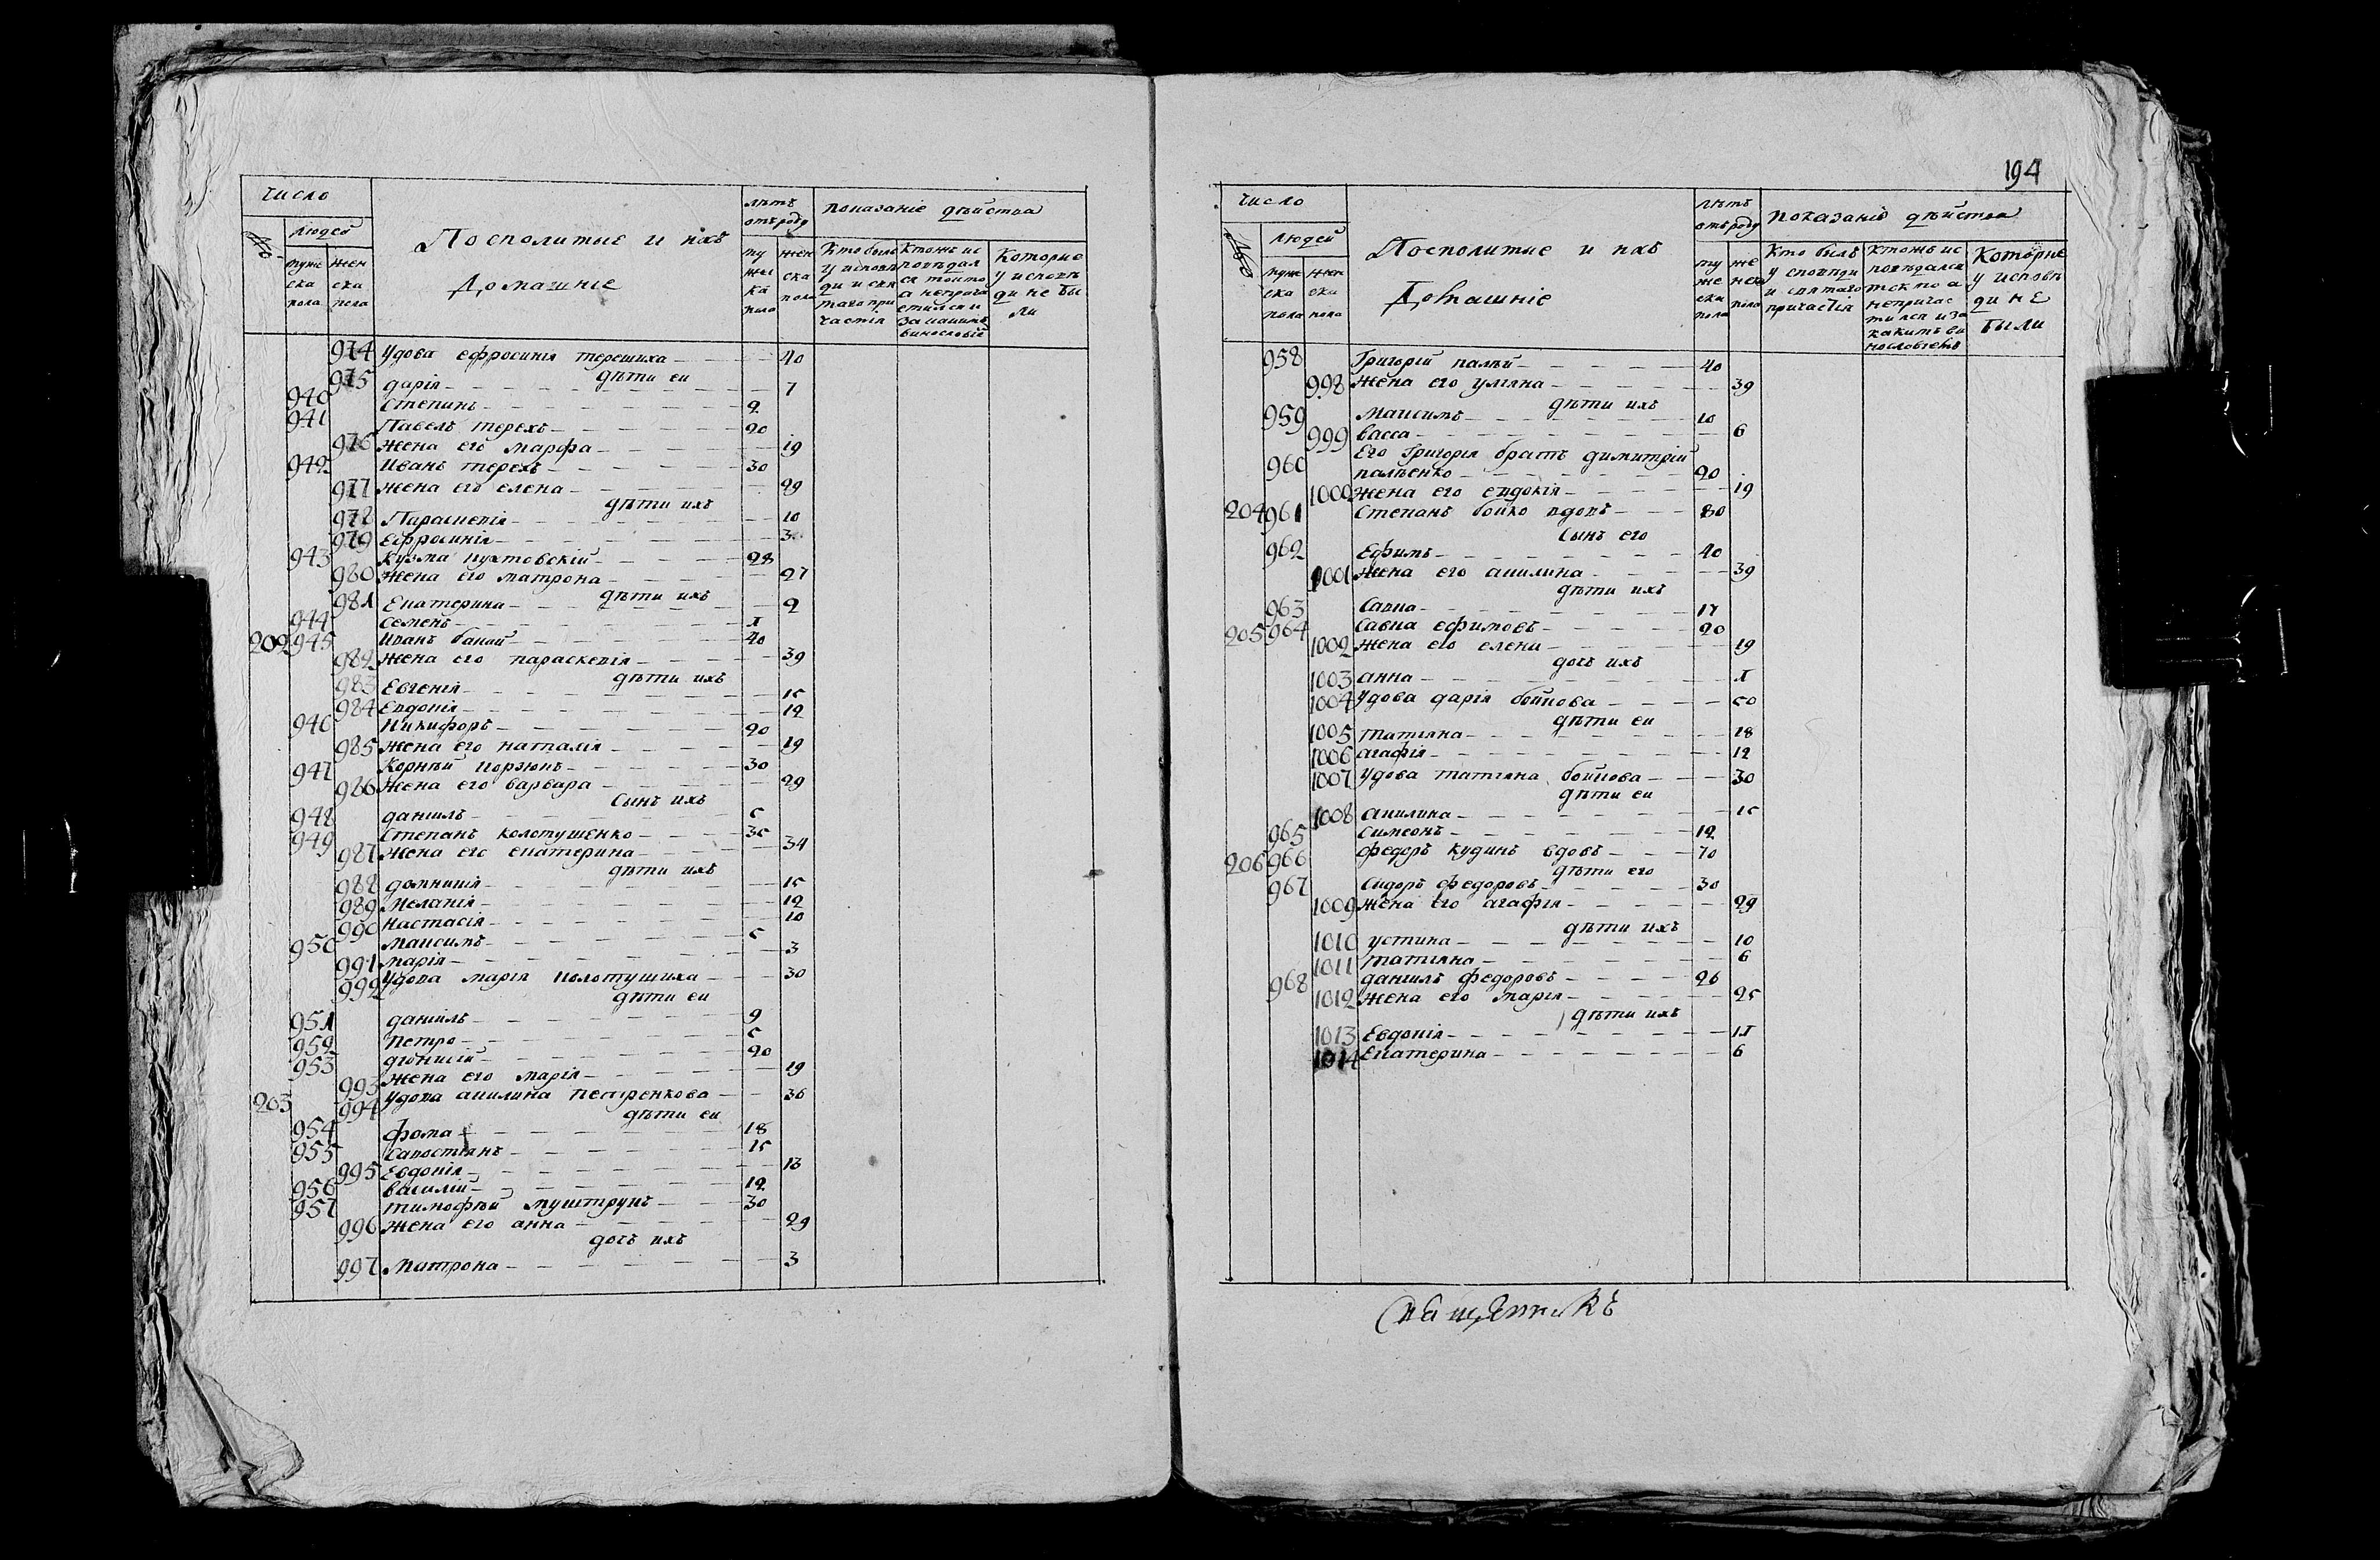 число
людей
№
муже ска пола
жен ска пола
Посполитые и ихъ
Домашніе
лѣтъ отъ роду
муж ска пола
жен ска пола
показаніе дѣйства
Кто былъ у исповѣди и святаго причастія
Которые у исповѣди не были
974 Удова ефросинія терешиха 40
дѣти еи
975 дарія 7
940 Степанъ 2
941 Павелъ терехъ 20
976 жена его марфа 19
942 Иванъ терехъ 30
977 жена его елена 29
дѣти ихъ
978 Параскевія 10
979 Ефросинія 3
943 Кузма пухтовскій 28
980 жена его матрона 27
дѣти ихъ
981 Екатерина 2
944 Семенъ 1
202 945 Иванъ бакай 40
982 жена его параскевія 39
дѣти ихъ
983 Евгенія 15
984 Евдокія 12
946 Никифоръ 20
985 жена его наталія 19
947 Корнѣй коржюкъ 30
986 жена его варвара 29
Сынъ ихъ
948 даніилъ 5
949 Степанъ колотушенко 35
987 жена его екатерина 34
дѣти ихъ
988 домникія 15
989 Меланія 12
990 Настасія 10
950 Максимъ 5
991 марія 3
992 Удова марія колотушиха 30
дѣти еи
951 даніилъ 9
952 Петро 5
953 діонисій 20
993 жена его марія 19
203 994 Удова акилина петренкова 36
дѣти еи
954 фома 18
955 Савостіянъ 15
995 Евдокія 13
956 василій 12
957 тимофѣй муштрукъ 30
996 жена его анна 29
дочъ ихъ
997 Матрона 3
194
число
людей
№
муже ска пола
жен ска пола
Посполитие и ихъ
Домашніе
лѣтъ отъ роду
показаніе дѣйства
Кто былъ у сповѣди и святаго причастія
Которие у исповѣди не были
958 Григорій палѣй 40
998 жена его уліяна 39
дѣти ихъ
959 Максимъ 10
999 васса 6
960 Его Григорія братъ димитрій
палѣенко 20
1000 жена его евдокія 19
204 961 Степанъ бойко вдовъ 80
Сынъ его
962 Ефимъ 40
1001 жена его акилина 39
дѣти ихъ
963 Савка 17
205 964 Савка ефимовъ 20
1002 жена его елена 19
дочъ ихъ
1003 анна 1
1004 Удова дарія бойкова 50
дѣти еи
1005 татіяна 18
1006 агафія 12
1007 Удова татіяна бойкова 30
дѣти еи
1008 акилина 15
965 Симеонъ 12
206 966 федоръ кудинъ вдовъ 70
дѣти его
967 Сидоръ федоровъ 30
1009 жена его агафія 29
дѣти ихъ
1010 устина 10
1011 татіяна 6
968 даніилъ федоровъ 26
1012 жена его марія 25
дѣти ихъ
1013 Евдокія 11
1014 Екатерина 6
Священникъ